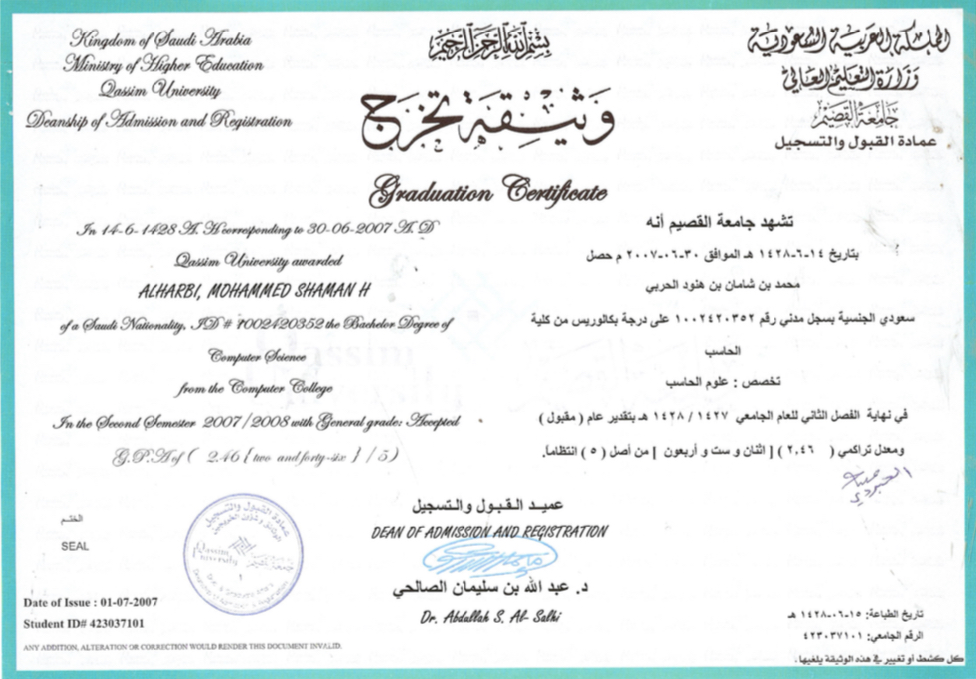 Kingdom of Saudi Arabia
Ministry of Higher Education
Qassim University
Deanship of Admission and Registration
بسم الله الرحمن الرحيم
المملكة العربية السعودية
وزارة التعليم العالي
جامعة القصيم
عمادة القبول والتسجيل
وثيقة تخرج
Graduation Certificate
In 14-6-1428 A.H corresponding to 30-06-2007 A.D
Qassim University awarded
ALHARBI, MOHAMMED SHAMAN H
of a Saudi Nationality, ID # 1002420352 the Bachelor Degree of
Computer Science
from the Computer College
In the Second Semester 2007/2008 with General grade: Accepted
G.P.A of ( 2.46 { two and forty-six } / 5)
تشهد جامعة القصيم أنه
بتاريخ ١٤-٦-١٤٢٨ هـ الموافق ٣٠-٠٦-٢٠٠٧ م حصل
محمد بن شامان بن هنود الحربي
سعودي الجنسية بسجل مدني رقم ١٠٠٢٤٢٠٣٥٢ على درجة بكالوريس من كلية
الحاسب
تخصص : علوم الحاسب
في نهاية الفصل الثاني للعام الجامعي ١٤٢٧ / ١٤٢٨ هـ بتقدير عام ( مقبول )
ومعدل تراكمي ( ٢,٤٦ ) [ اثنان و ست و أربعون ] من أصل ( ٥ ) انتظاما.
الختم
SEAL
عمادة القبول والتسجيل
Qassim University
جامعة القصيم
عميد القبول والتسجيل
DEAN OF ADMISSION AND REGISTRATION
د. عبد الله بن سليمان الصالحي
Dr. Abdullah S. Al- Salhi
Date of Issue : 01-07-2007
Student ID# 423037101
ANY ADDITION, ALTERATION OR CORRECTION WOULD RENDER THIS DOCUMENT INVALID.
تاريخ الطباعة: ١٥-٠٦-١٤٢٨ هـ
الرقم الجامعي: ٤٢٣٠٣٧١٠١
كل كشط أو تغيير في هذه الوثيقة يلغيها.